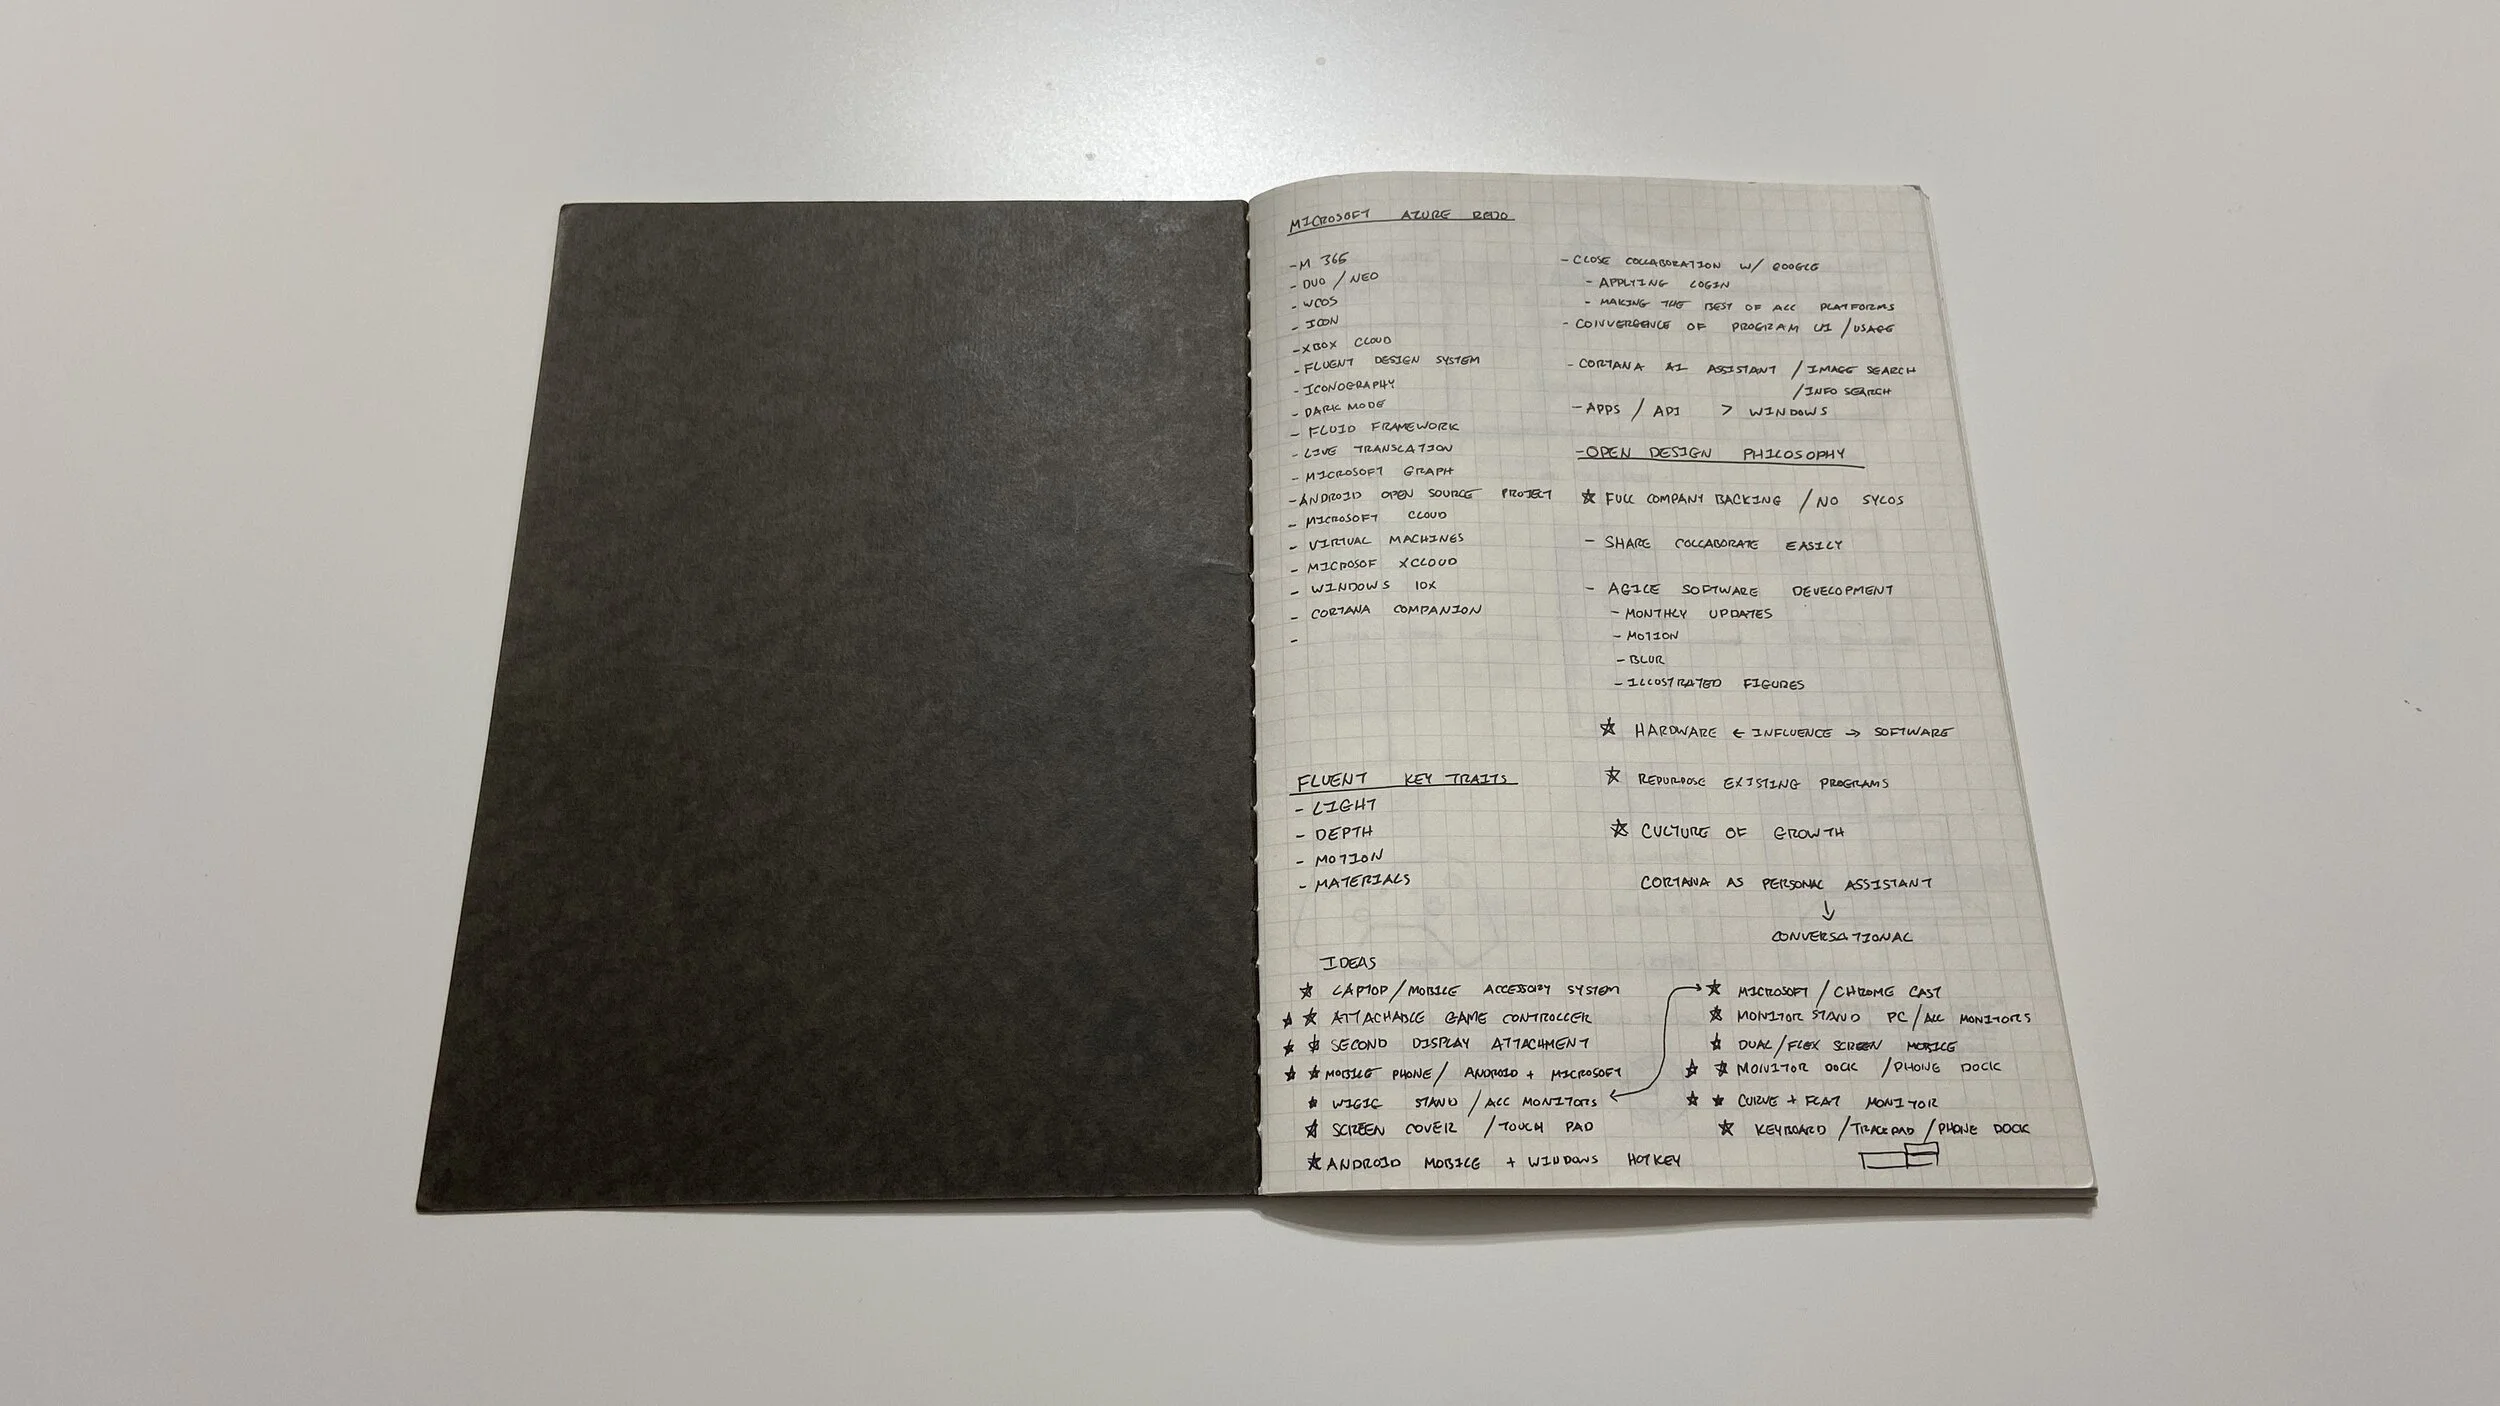 MICROSOFT AZURE REDO
- M 365
- DUO / NEO
- WCOS
- ICON
- XBOX CLOUD
- FLUENT DESIGN SYSTEM
- ICONOGRAPHY
- DARK MODE
- FLUID FRAMEWORK
- LIVE TRANSLATION
- MICROSOFT GRAPH
- ANDROID OPEN SOURCE PROJECT
- MICROSOFT CLOUD
- VIRTUAL MACHINES
- MICROSOF XCLOUD
- WINDOWS 10X
- CORTANA COMPANION
-
FLUENT KEY TRAITS
- LIGHT
- DEPTH
- MOTION
- MATERIALS
- CLOSE COLLABORATION W/ GOOGLE
- APPLYING LOGIN
- MAKING THE BEST OF ALL PLATFORMS
- CONVERGENCE OF PROGRAM UI / USAGE
- CORTANA AI ASSISTANT / IMAGE SEARCH
/ INFO SEARCH
- APPS / API > WINDOWS
- OPEN DESIGN PHILOSOPHY
☆ FULL COMPANY BACKING / NO SYLOS
- SHARE COLLABORATE EASILY
- AGILE SOFTWARE DEVELOPMENT
- MONTHLY UPDATES
- MOTION
- BLUR
- ILLUSTRATED FIGURES
☆ HARDWARE ← INFLUENCE → SOFTWARE
☆ REPURPOSE EXISTING PROGRAMS
☆ CULTURE OF GROWTH
CORTANA AS PERSONAL ASSISTANT
↓
CONVERSATIONAL
IDEAS
☆ LAPTOP / MOBILE ACCESSORY SYSTEM
☆ ☆ ATTACHABLE GAME CONTROLLER
☆ ☆ SECOND DISPLAY ATTACHMENT
☆ ☆ MOBILE PHONE / ANDROID + MICROSOFT
☆ WIGIG STAND / ALL MONITORS
☆ SCREEN COVER / TOUCH PAD
☆ ANDROID MOBILE + WINDOWS HOTKEY
☆ MICROSOFT / CHROME CAST
☆ MONITOR STAND PC / ALL MONITORS
☆ DUAL / FLEX SCREEN MOBILE
☆ ☆ MONITOR DOCK / PHONE DOCK
☆ ☆ CURVE + FLAT MONITOR
☆ KEYBOARD / TRACKPAD / PHONE DOCK